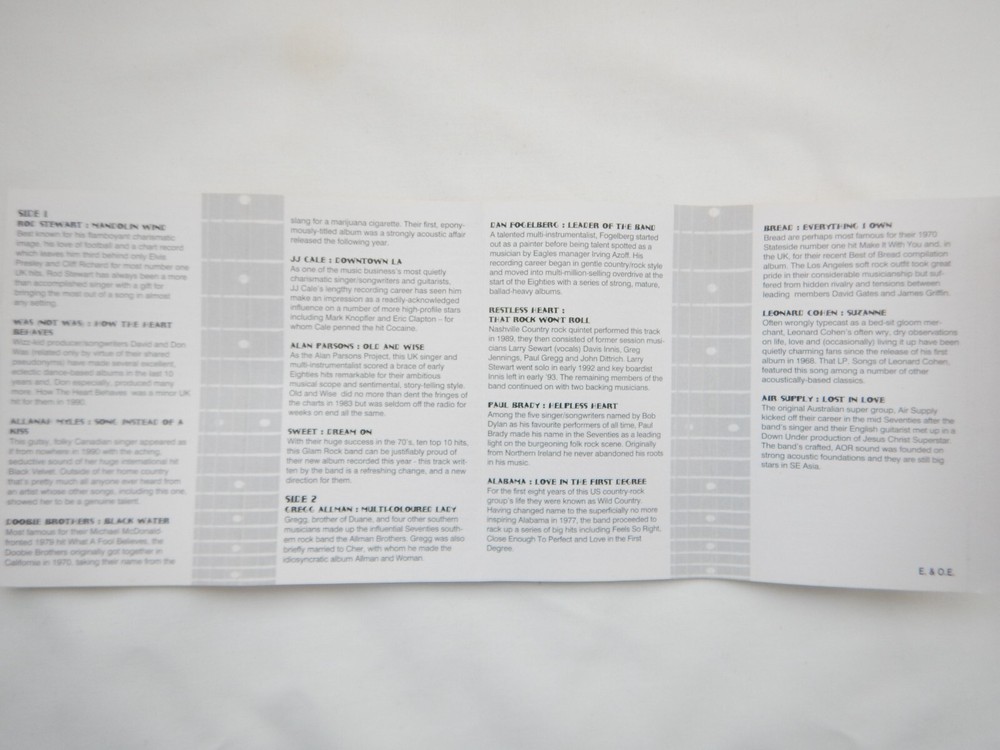 SIDE 1
ROD STEWART : MANDOLIN WIND
Best known for his flamboyant charismatic
image, his love of football and a chart record
which leaves him third behind only Elvis
Presley and Cliff Richard for most number one
UK hits, Rod Stewart has always been a more
than accomplished singer with a gift for
bringing the most out of a song in almost
any setting.
WAS (NOT WAS) : HOW THE HEART
BEHAVES
Wizz-kid producer/songwriters David and Don
Was (related only by virtue of their shared
pseudonyms) have made several excellent,
eclectic dance-based albums in the last 10
years and, Don especially, produced many
more. How The Heart Behaves was a minor UK
hit for them in 1990.
ALLANAH MYLES : SONG INSTEAD OF A
KISS
This gutsy, folky Canadian singer appeared as
if from nowhere in 1990 with the aching,
seductive sound of her huge international hit
Black Velvet. Outside of her home country
that's pretty much all anyone ever heard from
an artist whose other songs, including this one,
showed her to be a genuine talent.
DOOBIE BROTHERS : BLACK WATER
Most famous for their Michael McDonald-
fronted 1979 hit What A Fool Believes, the
Doobie Brothers originally got together in
California in 1970, taking their name from the
slang for a marijuana cigarette. Their first, epony-
mously-titled album was a strongly acoustic affair
released the following year.
JJ CALE : DOWNTOWN LA
As one of the music business's most quietly
charismatic singer/songwriters and guitarists,
JJ Cale's lengthy recording career has seen him
make an impression as a readily-acknowledged
influence on a number of more high-profile stars
including Mark Knopfler and Eric Clapton – for
whom Cale penned the hit Cocaine.
ALAN PARSONS : OLD AND WISE
As the Alan Parsons Project, this UK singer and
multi-instrumentalist scored a brace of early
Eighties hits remarkable for their ambitious
musical scope and sentimental, story-telling style.
Old and Wise did no more than dent the fringes of
the charts in 1983 but was seldom off the radio for
weeks on end all the same.
SWEET : DREAM ON
With their huge success in the 70's, ten top 10 hits,
this Glam Rock band can be justifiably proud of
their new album recorded this year - this track writ-
ten by the band is a refreshing change, and a new
direction for them.
SIDE 2
GREGG ALLMAN : MULTI-COLOURED LADY
Gregg, brother of Duane, and four other southern
musicians made up the influential Seventies south-
ern rock band the Allman Brothers. Gregg was also
briefly married to Cher, with whom he made the
idiosyncratic album Allman and Woman.
DAN FOGELBERG : LEADER OF THE BAND
A talented multi-instrumentalist, Fogelberg started
out as a painter before being talent spotted as a
musician by Eagles manager Irving Azoff. His
recording career began in gentle country/rock style
and moved into multi-million-selling overdrive at the
start of the Eighties with a series of strong, mature,
ballad-heavy albums.
RESTLESS HEART :
THAT ROCK WON'T ROLL
Nashville Country rock quintet performed this track
in 1989, they then consisted of former session musi-
cians Larry Sewart (vocals) Davis Innis, Greg
Jennings, Paul Gregg and John Dittrich. Larry
Stewart went solo in early 1992 and key boardist
Innis left in early '93. The remaining members of the
band continued on with two backing musicians.
PAUL BRADY : HELPLESS HEART
Among the five singer/songwriters named by Bob
Dylan as his favourite performers of all time, Paul
Brady made his name in the Seventies as a leading
light on the burgeoning folk rock scene. Originally
from Northern Ireland he never abandoned his roots
in his music.
ALABAMA : LOVE IN THE FIRST DEGREE
For the first eight years of this US country-rock
group's life they were known as Wild Country.
Having changed name to the superficially no more
inspiring Alabama in 1977, the band proceeded to
rack up a series of big hits including Feels So Right,
Close Enough To Perfect and Love in the First
Degree.
BREAD : EVERYTHING I OWN
Bread are perhaps most famous for their 1970
Stateside number one hit Make It With You and, in
the UK, for their recent Best of Bread compilation
album. The Los Angeles soft rock outfit took great
pride in their considerable musicianship but suf-
fered from hidden rivalry and tensions between
leading members David Gates and James Griffin.
LEONARD COHEN : SUZANNE
Often wrongly typecast as a bed-sit gloom mer-
chant, Leonard Cohen's often wry, dry observations
on life, love and (occasionally) living it up have been
quietly charming fans since the release of his first
album in 1968. That LP, Songs of Leonard Cohen,
featured this song among a number of other
acoustically-based classics.
AIR SUPPLY : LOST IN LOVE
The original Australian super group, Air Supply
kicked off their career in the mid Seventies after the
band's singer and their English guitarist met up in a
Down Under production of Jesus Christ Superstar.
The band's crafted, AOR sound was founded on
strong acoustic foundations and they are still big
stars in SE Asia.
E. & O.E.